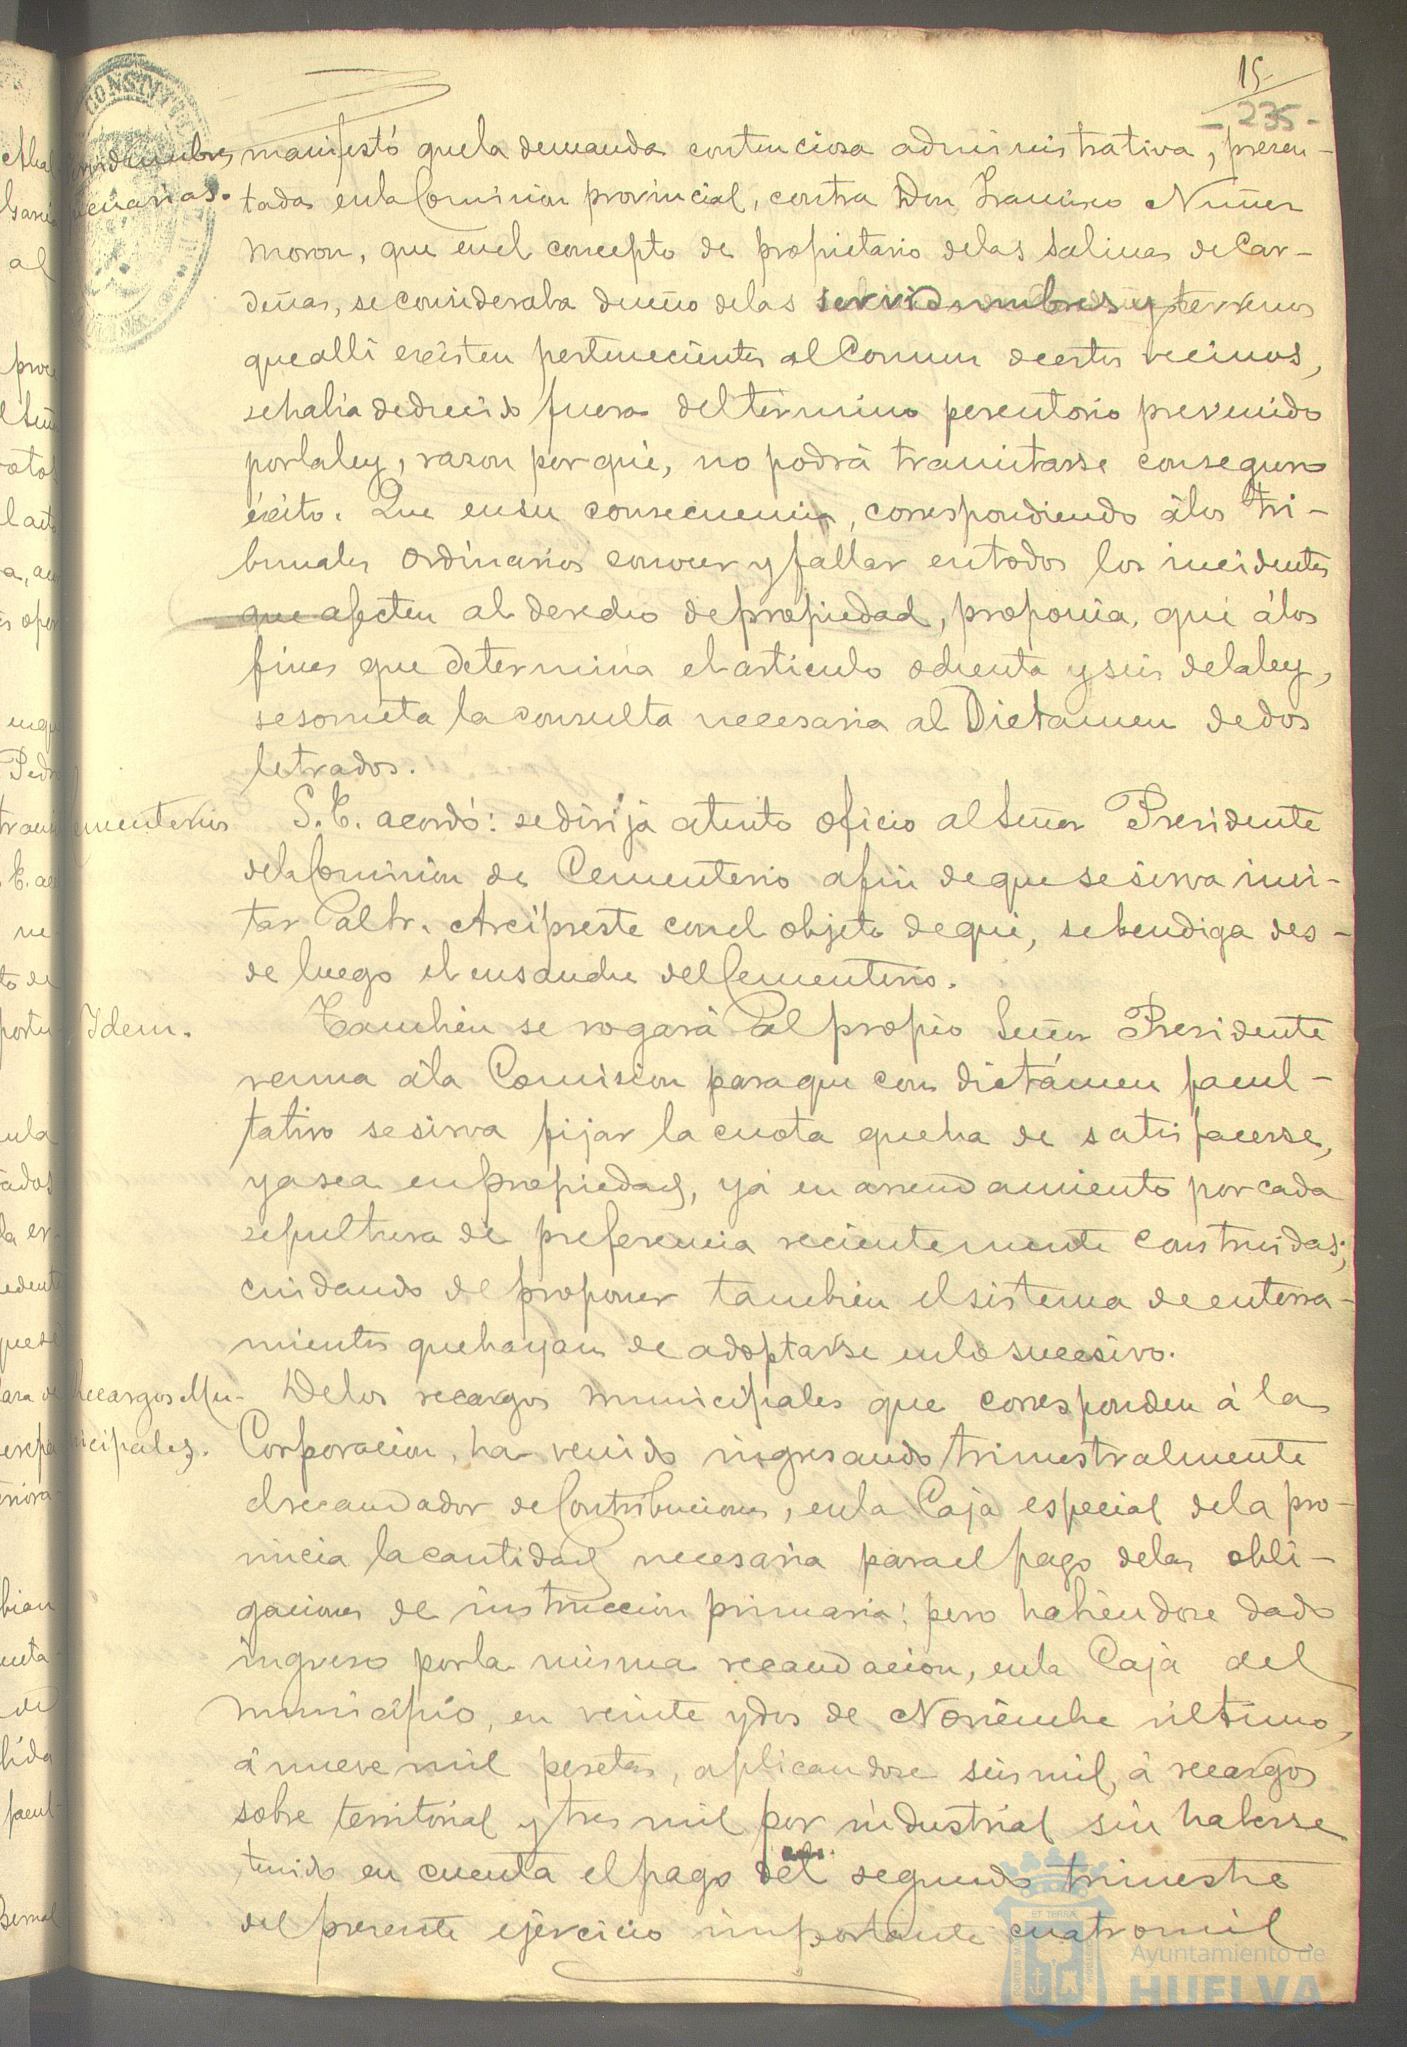 15
-235-
manifestó quela demanda contenciosa administrativa, presen-
tada enla Comision provincial, contra Don Francisco Nuñez
Moron, que enel concepto de propietario delas Salinas de Car-
deñas, seconsideraba dueño delas servidumbres y terrenos
quealli existen pertenecientes al Comun deestos vecinos,
sehabia deducido fuera deltermino perentorio prevenido
porlaley, razon por qué, no podrá tramitarse conseguro
éxito. Que ensu consecuencia, correspondiendo álos Tri-
bunales ordinarios conocer y fallar entodos los incidentes
que afecten al derecho depropiedad, proponia, qué álos
fines que determina el articulo ochenta y seis delaley,
sesometa la consulta necesaria al Dictamen dedos
letrados.
ementerio
S.E. acordó: sedirija atento oficio al Señor Presidente
dela Comision de Cementerio afin dequesesirva invi-
tar al Sr. Arcipreste conel objeto dequé, sebendiga des-
de luego el ensanche del Cementerio.
Idem.
Tambien se rogará al propio Señor Presidente
reuna ála Comision paraque con dictámen facul-
tativo sesirva fijar la cuota queha de satisfacerse,
yasea en propiedad, yá en arrendamiento porcada
sepultura de preferencia recientemente construidas;
cuidando de proponer tambien elsistema deenterra-
mientos quehayan de adoptarse enlosucesivo.
Recargos Mu-
nicipales.
Delos recargos municipales que corresponden á la
Corporacion, ha venido ingresando trimestralmente
elrecaudador de Contribuciones, enla Caja especial dela pro-
vincia lacantidad necesaria parael pago delas obli-
gaciones de instruccion primaria; pero habiendose dado
ingreso porla misma recaudacion, enla Caja del
municipio, en veinte ydos de Noviembre último,
á nueve mil pesetas, aplicandose seis mil, á recargos
sobre territorial y tres mil por industrial sin haberse
tenido en cuenta el pago del segundo trimestre
del presente ejercicio importante cuatromil
Ayuntamiento de
HUELVA